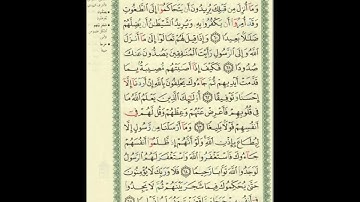 وَمَآ أُنزِلَ مِن قَبْلِكَ يُرِيدُونَ أَن يَتَحَاكَمُوٓا۟ إِلَى ٱلطَّٰغُوتِ
وَقَدْ أُمِرُوٓا۟ أَن يَكْفُرُوا۟ بِهِۦ وَيُرِيدُ ٱلشَّيْطَٰنُ أَن يُضِلَّهُمْ
ضَلَٰلَۢا بَعِيدًا ٦٠ وَإِذَا قِيلَ لَهُمْ تَعَالَوْا۟ إِلَىٰ مَآ أَنزَلَ
ٱللَّهُ وَإِلَى ٱلرَّسُولِ رَأَيْتَ ٱلْمُنَٰفِقِينَ يَصُدُّونَ عَنكَ
صُدُودًا ٦١ فَكَيْفَ إِذَآ أَصَٰبَتْهُم مُّصِيبَةٌۢ بِمَا
قَدَّمَتْ أَيْدِيهِمْ ثُمَّ جَآءُوكَ يَحْلِفُونَ بِٱللَّهِ إِنْ أَرَدْنَآ إِلَّآ
إِحْسَٰنًا وَتَوْفِيقًا ٦٢ أُو۟لَٰٓئِكَ ٱلَّذِينَ يَعْلَمُ ٱللَّهُ مَا
فِى قُلُوبِهِمْ فَأَعْرِضْ عَنْهُمْ وَعِظْهُمْ وَقُل لَّهُمْ فِىٓ
أَنفُسِهِمْ قَوْلَۢا بَلِيغًا ٦٣ وَمَآ أَرْسَلْنَا مِن رَّسُولٍ إِلَّا
لِيُطَاعَ بِإِذْنِ ٱللَّهِ وَلَوْ أَنَّهُمْ إِذ ظَّلَمُوٓا۟ أَنفُسَهُمْ
جَآءُوكَ فَٱسْتَغْفَرُوا۟ ٱللَّهَ وَٱسْتَغْفَرَ لَهُمُ ٱلرَّسُولُ
لَوَجَدُوا۟ ٱللَّهَ تَوَّابًا رَّحِيمًا ٦٤ فَلَا وَرَبِّكَ لَا يُؤْمِنُونَ
حَتَّىٰ يُحَكِّمُوكَ فِيمَا شَجَرَ بَيْنَهُمْ ثُمَّ لَا يَجِدُوا۟